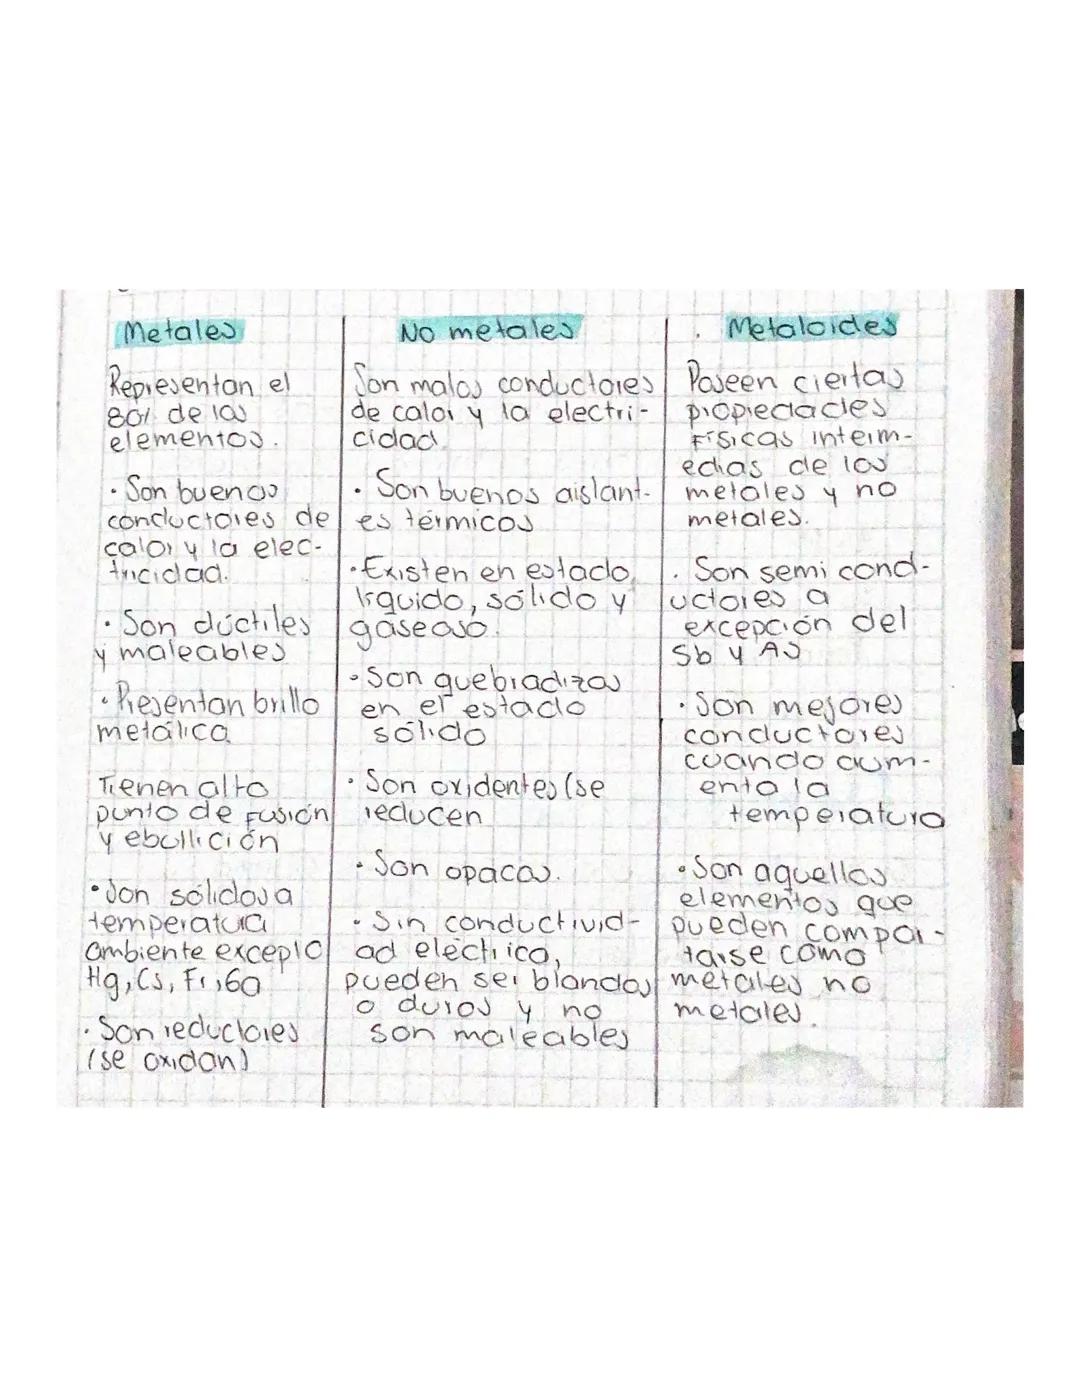 Metales
Representan el
80% de las
elementos.
· Son buenos
conductores de
calor y la elec-
tricidad.
· Son dúctiles
y maleables
· Presentan brillo
metálica
Tienen alto
punto de fusión
y ebullición
· Son sólidos a
temperatura
ambiente excepto
Hg, Cs, Fr, Ga
· Son reductores
(se oxidan)
No metales
Son malos conductores
de calor y la electri-
cidad
· Son buenos aislant-
es térmicos
· Existen en estado
líquido, sólido y
gaseoso.
· Son quebradizas
en el estado
sólido
· Son oxidentes (se
reducen
· Son opacos.
· Sin conductivid-
ad eléctrica,
pueden ser blandos
o duros y no
son maleables
Metaloides
Poseen ciertas
propiedades
Físicas interm-
edias de los
metales y no
metales.
· Son semi cond-
uctores a
excepción del
Sb y As
· Son mejores
conductores
cuando aum-
enta la
temperatura
· Son aquellos
elementos que
pueden compor-
tarse como
metales no
metales.